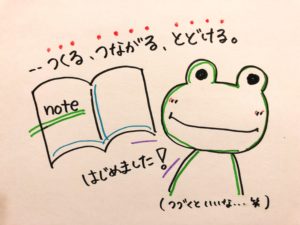 … つくる、つながる、とどける。
note
はじめました!
(つづくといいな… 笑)